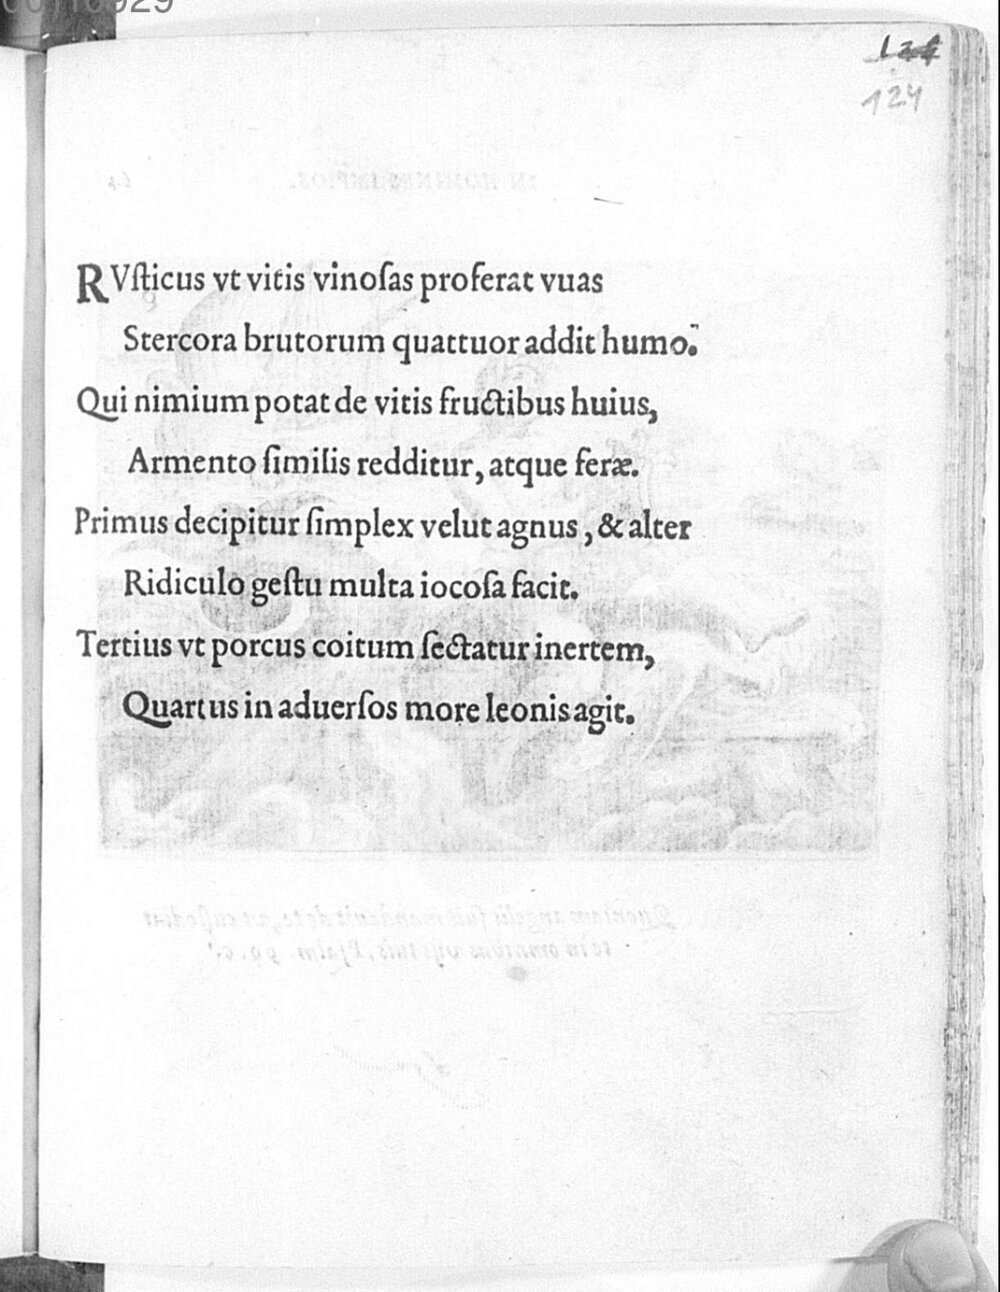 00110929
124
124
RVſticus vt vitis vinoſas proferat vuas
Stercora brutorum quattuor addit humo.
Qui nimium potat de vitis fructibus huius,
Armento ſimilis redditur, atque feræ.
Primus decipitur ſimplex velut agnus, & alter
Ridiculo geſtu multa iocoſa facit.
Tertius vt porcus coitum ſectatur inertem,
Quartus in aduerſos more leonis agit.